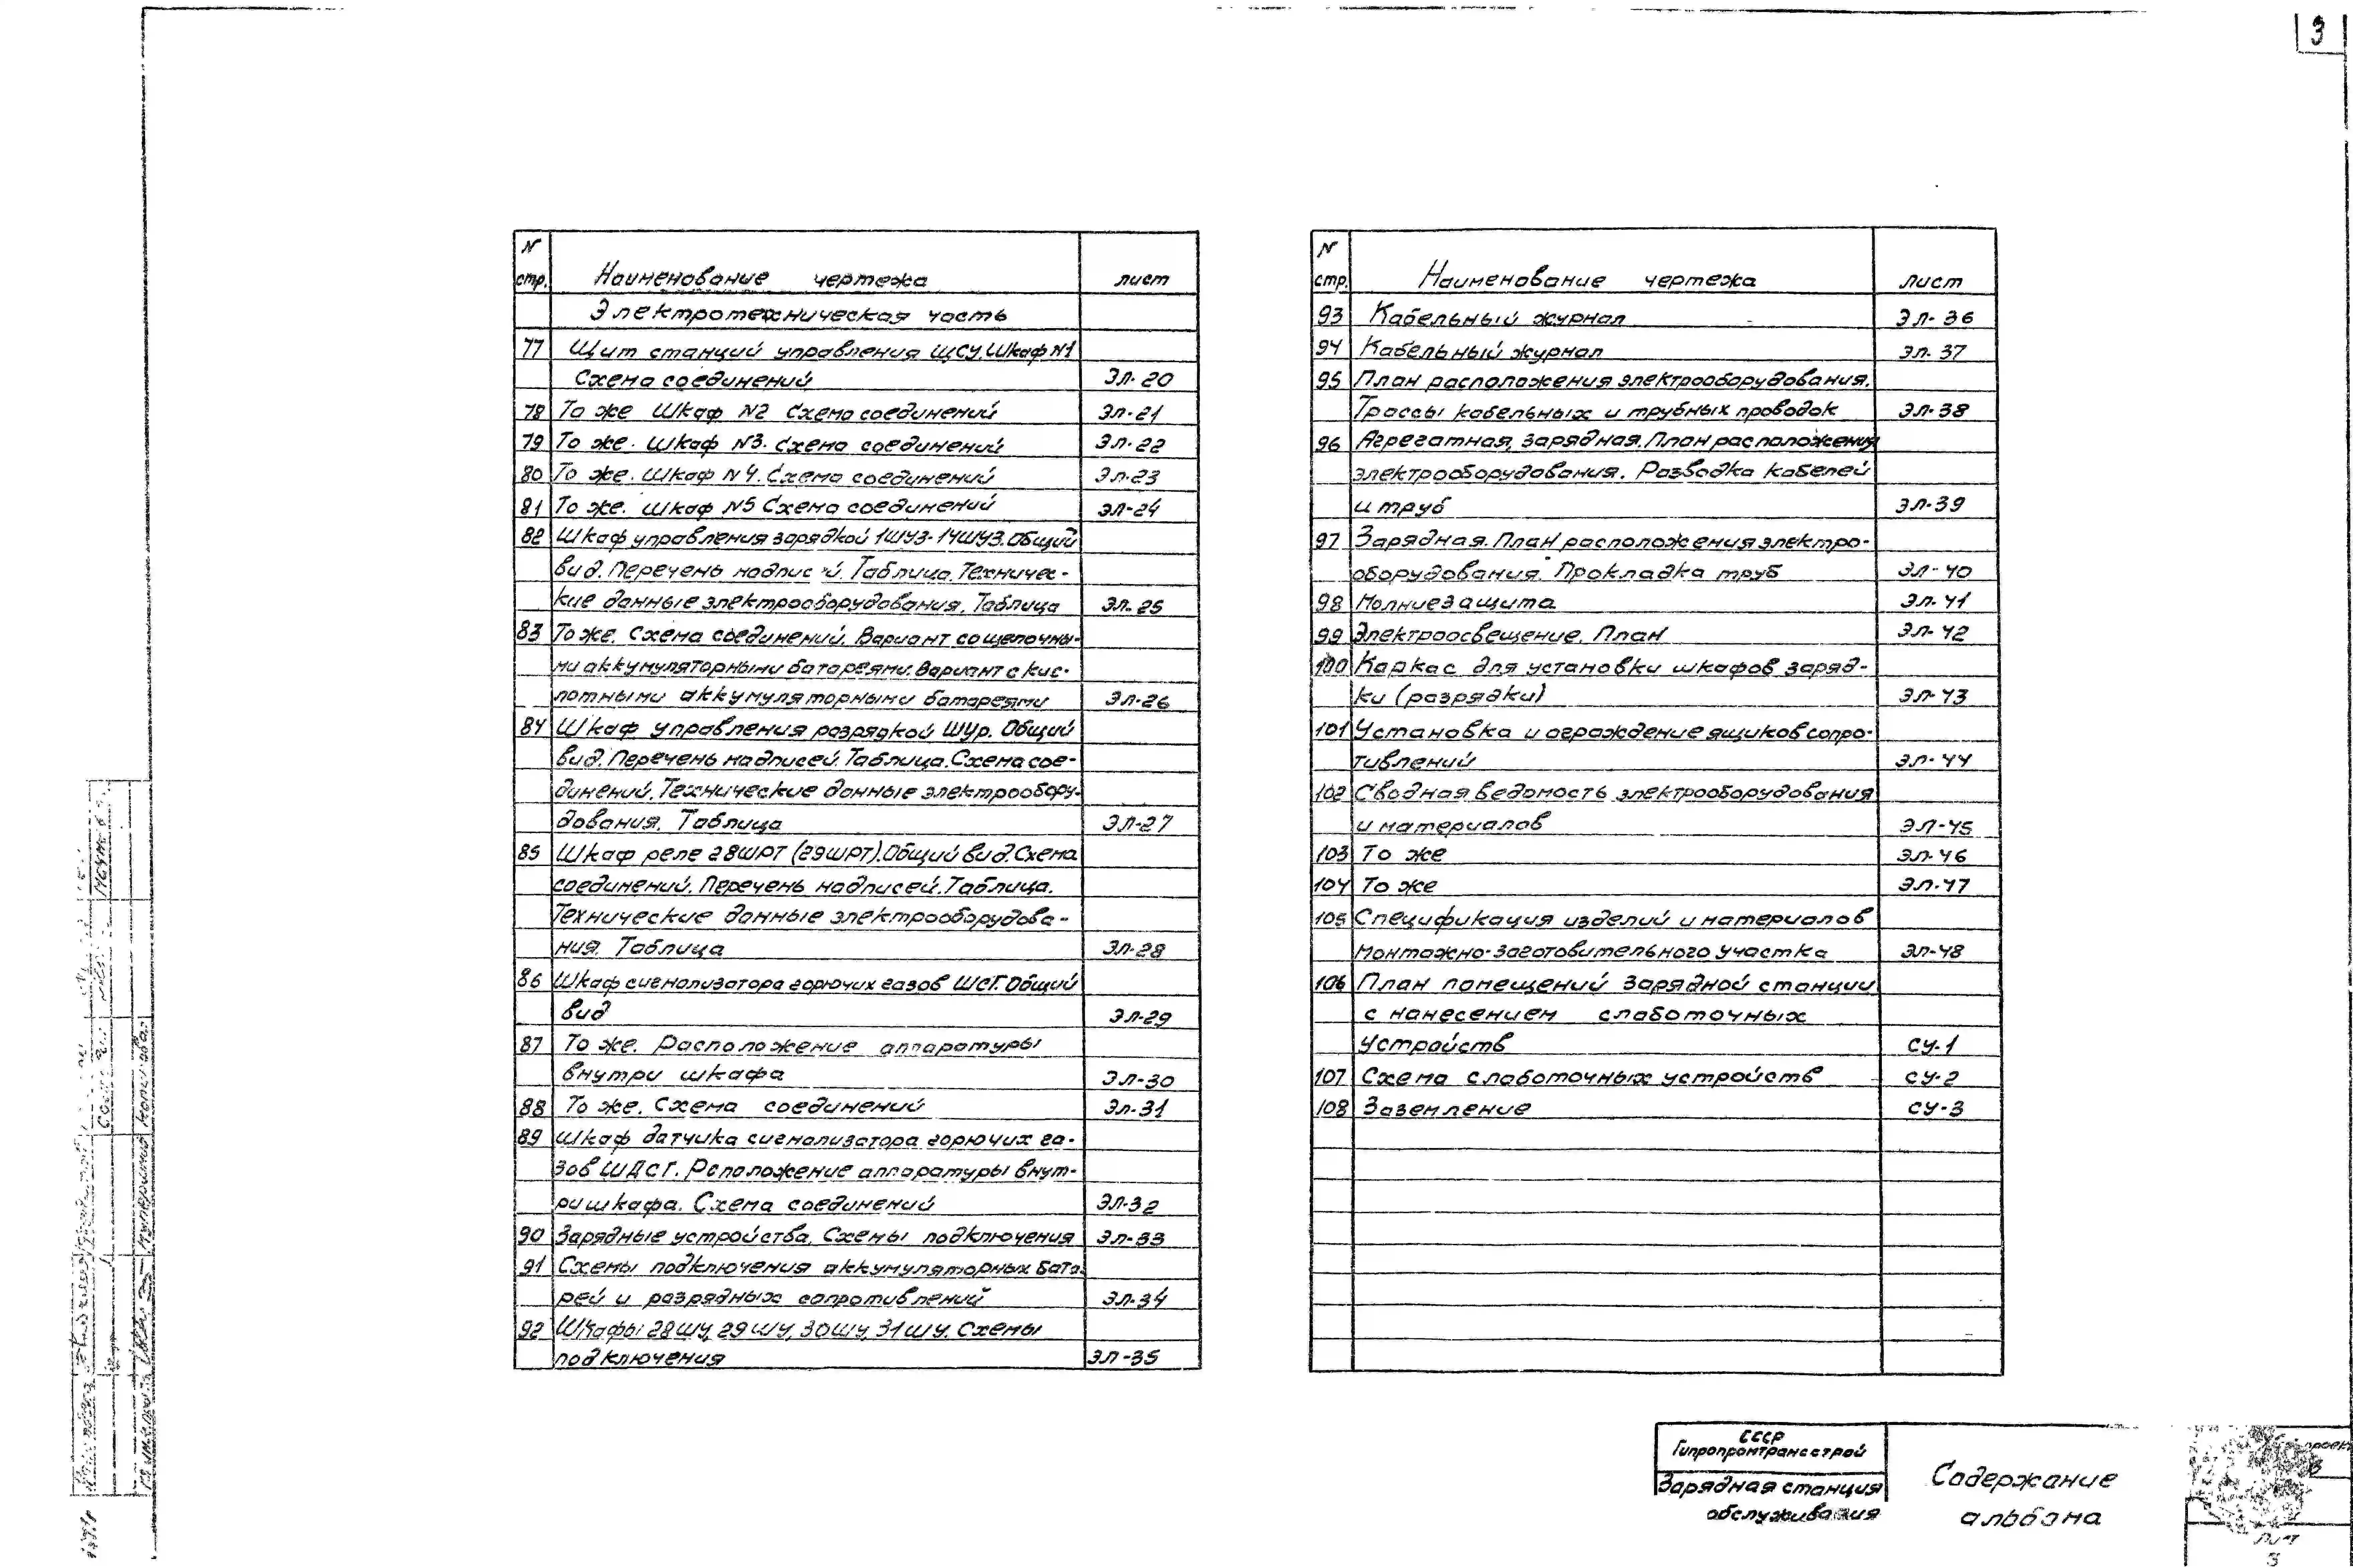 3
N стр. Наименование чертежа лист
Электротехническая часть
77 Щит станций управления ЩСУ. Шкаф N1
Схема соединений ЭЛ-20
78 То же Шкаф N2 Схема соединений ЭЛ-21
79 То же. Шкаф N3. Схема соединений ЭЛ-22
80 То же. Шкаф N4. Схема соединений ЭЛ-23
81 То же. Шкаф N5 Схема соединений ЭЛ-24
82 Шкаф управления зарядкой 1ШУЗ-14ШУЗ. Общий
вид. Перечень надписей. Таблица. Техничес-
кие данные электрооборудования. Таблица ЭЛ-25
83 То же. Схема соединений. Вариант со щелочны-
ми аккумуляторными батареями. Вариант с кис-
лотными аккумуляторными батареями ЭЛ-26
84 Шкаф управления разрядкой ШУр. Общий
вид. Перечень надписей. Таблица. Схема сое-
динений. Технические данные электрообору-
дования. Таблица ЭЛ-27
85 Шкаф реле 28ШРТ (29ШРТ). Общий вид. Схема
соединений. Перечень надписей. Таблица.
Технические данные электрооборудова-
ния. Таблица ЭЛ-28
86 Шкаф сигнализатора горючих газов ШСГ. Общий
вид ЭЛ-29
87 То же. Расположение аппаратуры
внутри шкафа ЭЛ-30
88 То же. Схема соединений ЭЛ-31
89 Шкаф датчика сигнализатора горючих га-
зов ШДСГ. Рсположение аппаратуры внут-
ри шкафа. Схема соединений ЭЛ-32
90 Зарядные устройства. Схемы подключения ЭЛ-33
91 Схемы подключения аккумуляторных бата-
рей и разрядных сопротивлений ЭЛ-34
92 Шкафы 28ШУ, 29ШУ, 30ШУ, 31ШУ. Схемы
подключения ЭЛ-35
N стр. Наименование чертежа лист
93 Кабельный журнал ЭЛ-36
94 Кабельный журнал ЭЛ-37
95 План расположения электрооборудования.
Трассы кабельных и трубных проводок ЭЛ-38
96 Агрегатная, зарядная. План расположения
электрооборудования. Разводка кабелей
и труб ЭЛ-39
97 Зарядная. План расположения электро-
оборудования. Прокладка труб ЭЛ-40
98 Молниезащита ЭЛ-41
99 Электроосвещение. План ЭЛ-42
100 Каркас для установки шкафов заряд-
ки (разрядки) ЭЛ-43
101 Установка и ограждение ящиков сопро-
тивлений ЭЛ-44
102 Сводная ведомость электрооборудования
и материалов ЭЛ-45
103 То же ЭЛ-46
104 То же ЭЛ-47
105 Спецификация изделий и материалов
монтажно-заготовительного участка ЭЛ-48
106 План помещений зарядной станции
с нанесением слаботочных
устройств СУ-1
107 Схема слаботочных устройств СУ-2
108 Заземление СУ-3
СССР
Гипропромтрансстрой
Зарядная станция
обслуживания
Содержание
альбома
Лист
3